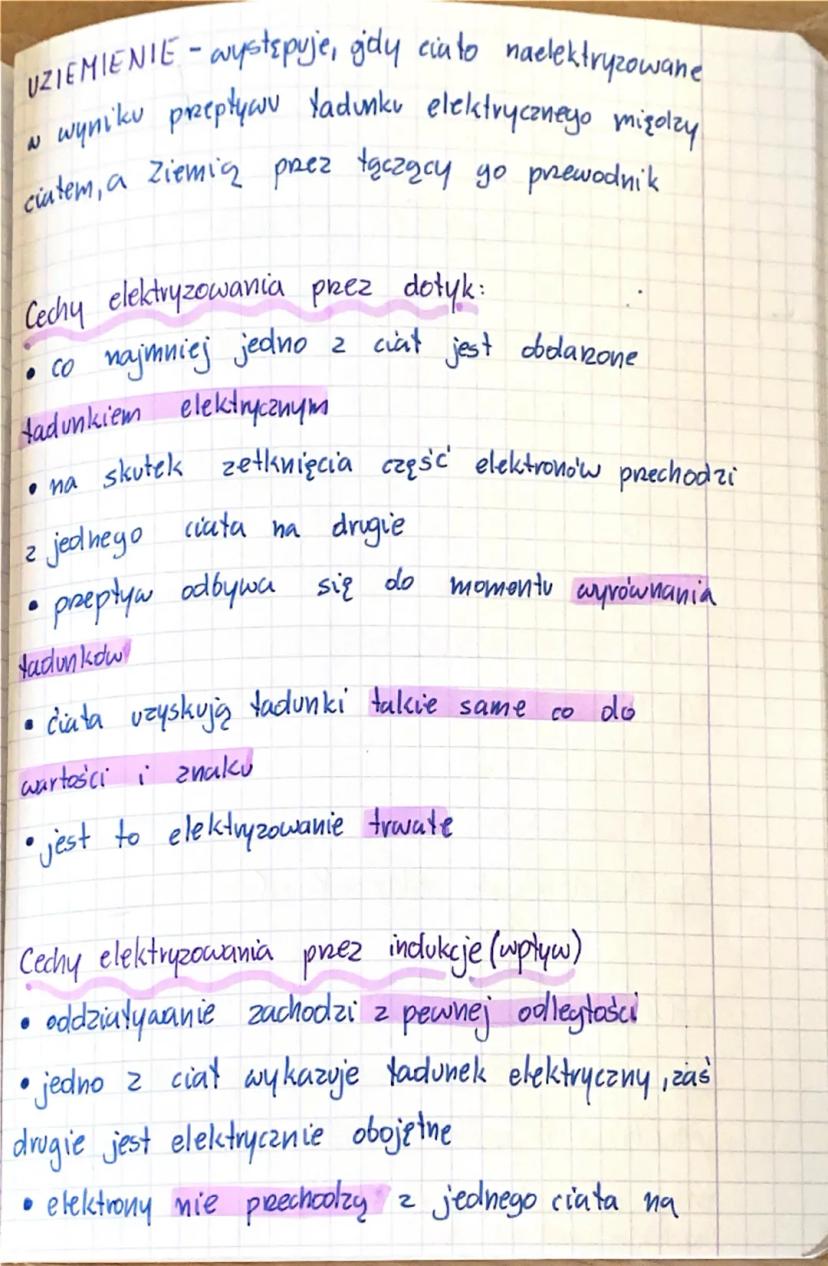 UZIEMIENIE - występuje, gdy ciało naelektryzowane
w wyniku przepływu ładunku elektrycznego między
ciałem, a Ziemią przez łączący go przewodnik
Cechy elektryzowania przez dotyk:
• co najmniej jedno z ciał jest obdarzone
ładunkiem elektrycznym
• na skutek zetknięcia część elektronów przechodzi
z jednego ciała na drugie
• przepływ odbywa się do momentu wyrównania
ładunków
• ciała uzyskują ładunki takie same co do
wartości i znaku
• jest to elektryzowanie trwałe
Cechy elektryzowania przez indukcje (wpływ)
• oddziaływanie zachodzi z pewnej odległości
• jedno z ciał wykazuje ładunek elektryczny, zaś
drugie jest elektrycznie obojętne
• elektrony nie przechodzą z jednego ciała na